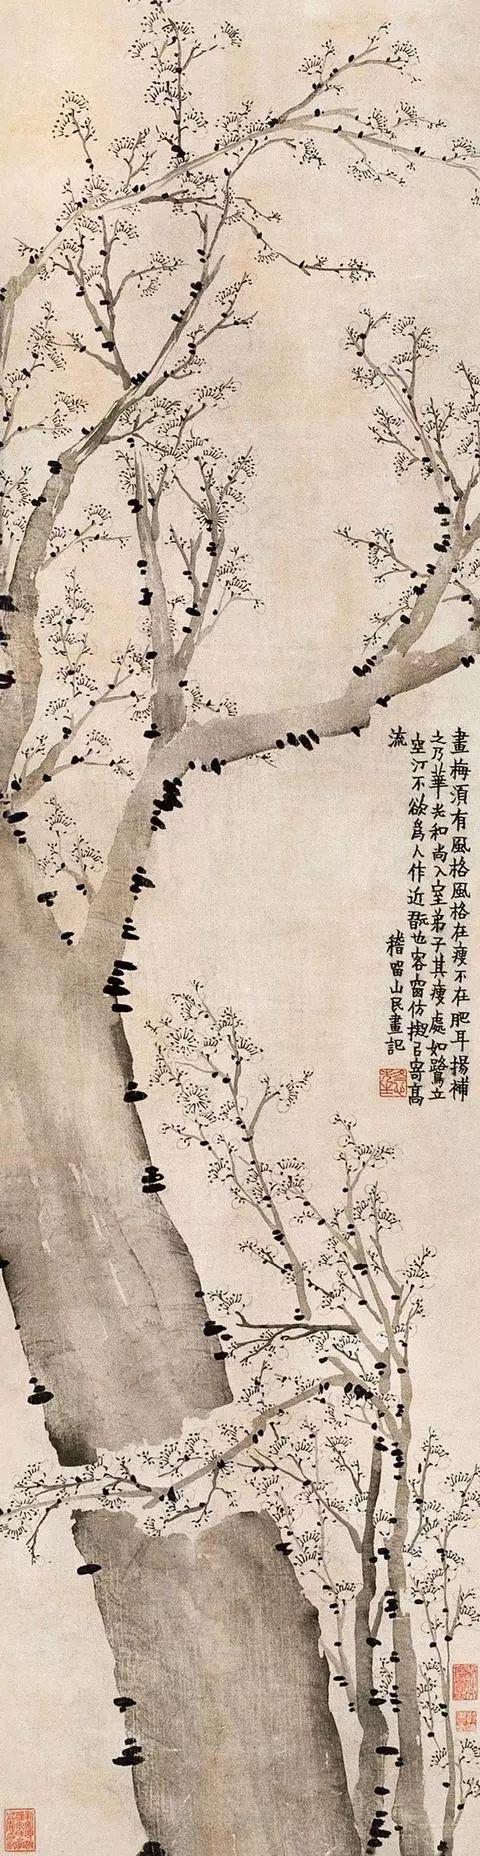 畫梅須有風格風格在瘦不在肥耳揚補
之乃華光和尚入室弟子其瘦處如鷺立
空汀不欲爲人作近翫也客窗仿擬以寄高
流
稽留山民畫記